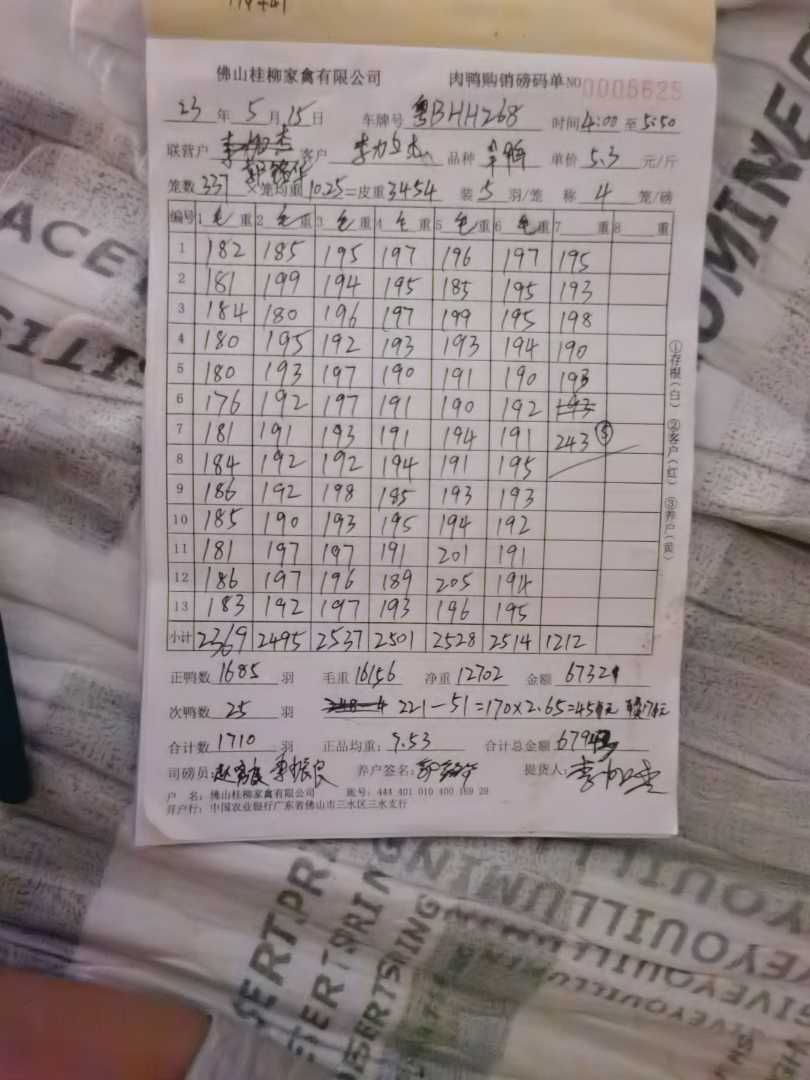 佛山桂柳家禽有限公司 肉鸭购销磅码单 NO 0005625
23 年 5 月 15 日 车牌号 粤BHH268 时间 4:00 至 5:50
联营户 客户 品种 单价 5.3 元/斤
笼数 337 × 笼均重 10.25 = 皮重 3454 装 5 羽/笼 称 4 笼/磅
编号 1 毛 重 2 毛 重 3 毛 重 4 毛 重 5 毛 重 6 毛 重 7 重 8 重
1 182 185 195 197 196 197 195
2 181 199 194 195 185 195 193
3 184 180 196 197 199 195 198
4 180 195 192 193 193 194 190
5 180 193 197 190 191 190 193
6 176 192 197 191 190 192 193
7 181 191 193 191 194 191 243 ⑤
8 184 192 192 194 191 195
9 186 192 198 185 193 193
10 185 190 193 195 194 192
11 181 197 197 191 201 191
12 186 197 196 189 205 194
13 183 192 197 193 196 195
小计 2369 2495 2537 2501 2528 2514 1212
正鸭数 1685 羽 毛重 16156 净重 12702 金额 67321
次鸭数 25 羽 221-51=170×2.65=451元
合计数 1710 羽 正品均重: 7.53 合计总金额
司磅员: 养户签名: 提货人:
户 名: 佛山桂柳家禽有限公司 账号: 444 401 010 400 169 29
开户行: 中国农业银行广东省佛山市三水区三水支行
①存根(白) ②客户(红) ③养户(黄)